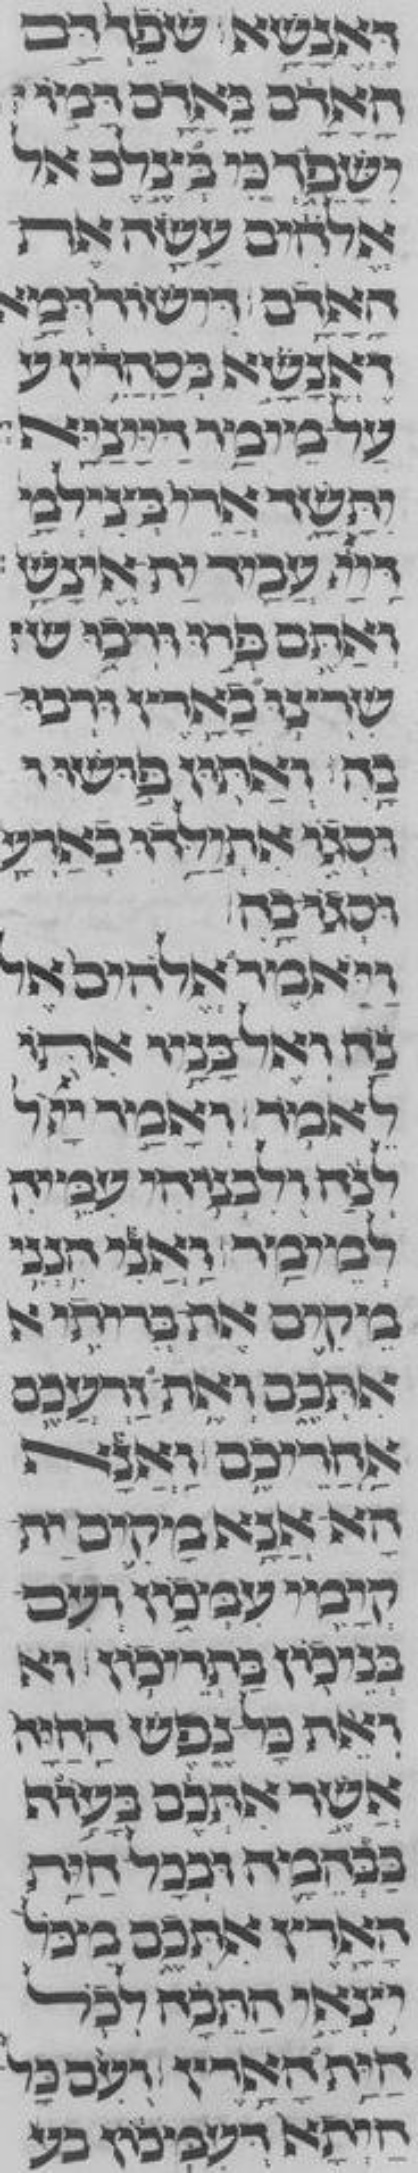 דַּאֲנָשָׁא׃ שֹׁפֵךְ דַּם
הָאָדָם בָּאָדָם דָּמוֹ
יִשָּׁפֵךְ כִּי בְּצֶלֶם אל
אֱלֹהִים עָשָׂה אֶת
הָאָדָם׃ דְּיִשּׁוֹד דְּמָא
דַאֲנָשָׁא בְּסָהֲדִין ע
עַל מֵימַר דַּיָּינַיָּא
יִתְּשַׁד אֲרֵי בְּצֵילְמָ
דַּייָ עֲבַיד יָת אֱינָשָׁ׃
וְאַתֶּם פְּרוּ וּרְבוּ ש
שִׁרְצוּ בָאָרֶץ וּרְבוּ
בָהּ׃ וְאַתּוּן פּוּשׁוּ ו
וּסְגוֹ אִתְיַלַּדוּ בְאַרְעָ
וּסְגוֹ בַהּ׃
וַיֹּאמֶר אֱלֹהִים אֶל
נֹחַ וְאֶל בָּנָיו אִתּוֹ
לֵאמֹר׃ וַאֲמַר ייָ ל
לְנֹחַ וְלִבְנוֹהִי עִמֵּיהּ
לְמֵימַר׃ וַאֲנִי הִנְנִי
מֵקִים אֶת בְּרִיתִי א
אִתְּכֶם וְאֶת זַרְעֲכֶם
אַחֲרֵיכֶם׃ וַאֲנָא
הָא אֲנָא מֵקִים יָת
קְיָמִי עִמְּכוֹן וְעִם
בְּנֵיכוֹן בַּתְרֵיכוֹן׃ וא
וְאֵת כָּל נֶפֶשׁ הַחַיָּה
אֲשֶׁר אִתְּכֶם בָּעוֹף
בַּבְּהֵמָה וּבְכָל חַיַּת
הָאָרֶץ אִתְּכֶם מִכֹּל
יֹצְאֵי הַתֵּבָה לְכֹל
חַיַּת הָאָרֶץ׃ וְעִם כָּל
חַיְתָא דְּעִמְּכוֹן בע